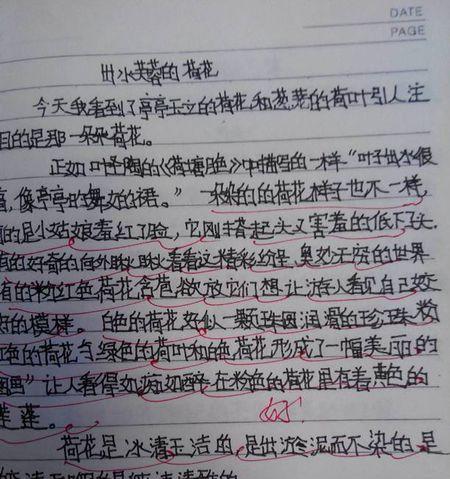 DATE
PAGE
出水芙蓉的荷花
今天我看到了亭亭玉立的荷花和葱茏的荷叶引人注
目的是那一朵朵荷花。
正如叶圣陶的《荷塘月色》中描写的一样“叶子出水很
高,像亭亭的舞女的裙。”一朵朵的的荷花样子也不一样,
有的是小姑娘羞红了脸,它刚抬起头又害羞的低下了头.
有的好奇的向外瞅瞅看看这精彩纷呈,奥妙无穷的世界
有的粉红色荷花含苞欲放它们想让游人看见自己姣
好的模样。白色的荷花好似一颗珠圆润滑的珍珠粉
红色的荷花与绿色的荷叶和白色荷花形成了一幅美丽的
图画”让人看得如痴如醉在粉色的荷花里有着黄色的
莲蓬。
好
荷花是冰清玉洁的,是出淤泥而不染的是